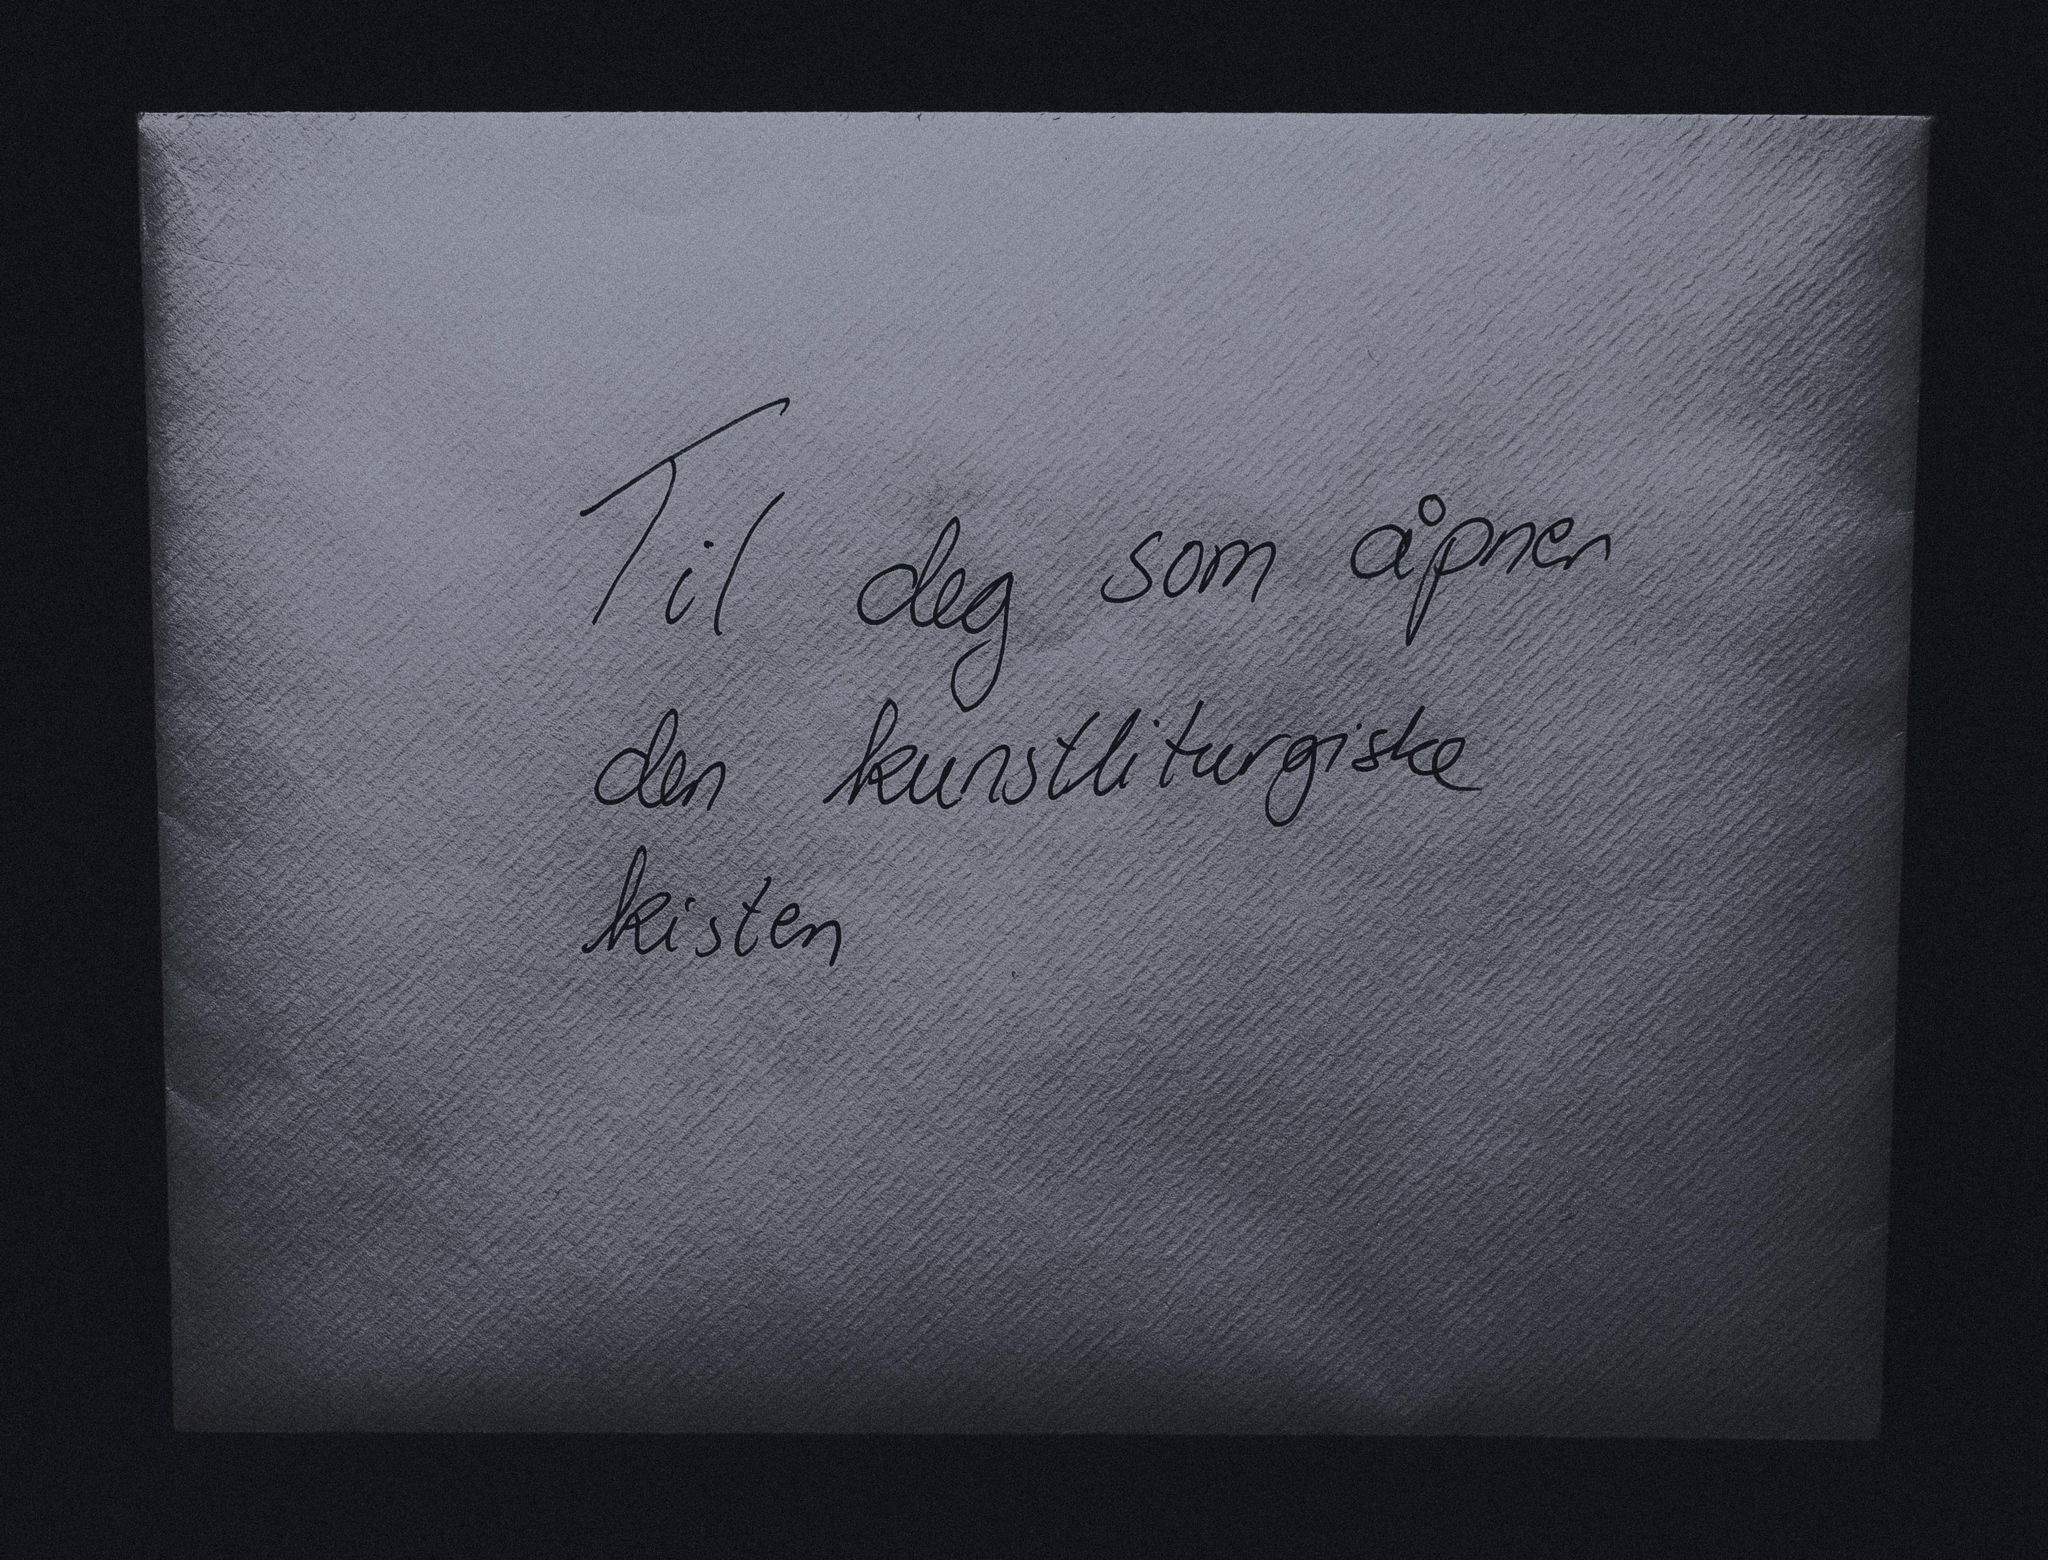 Til deg som åpner
den kunstliturgiske
kisten